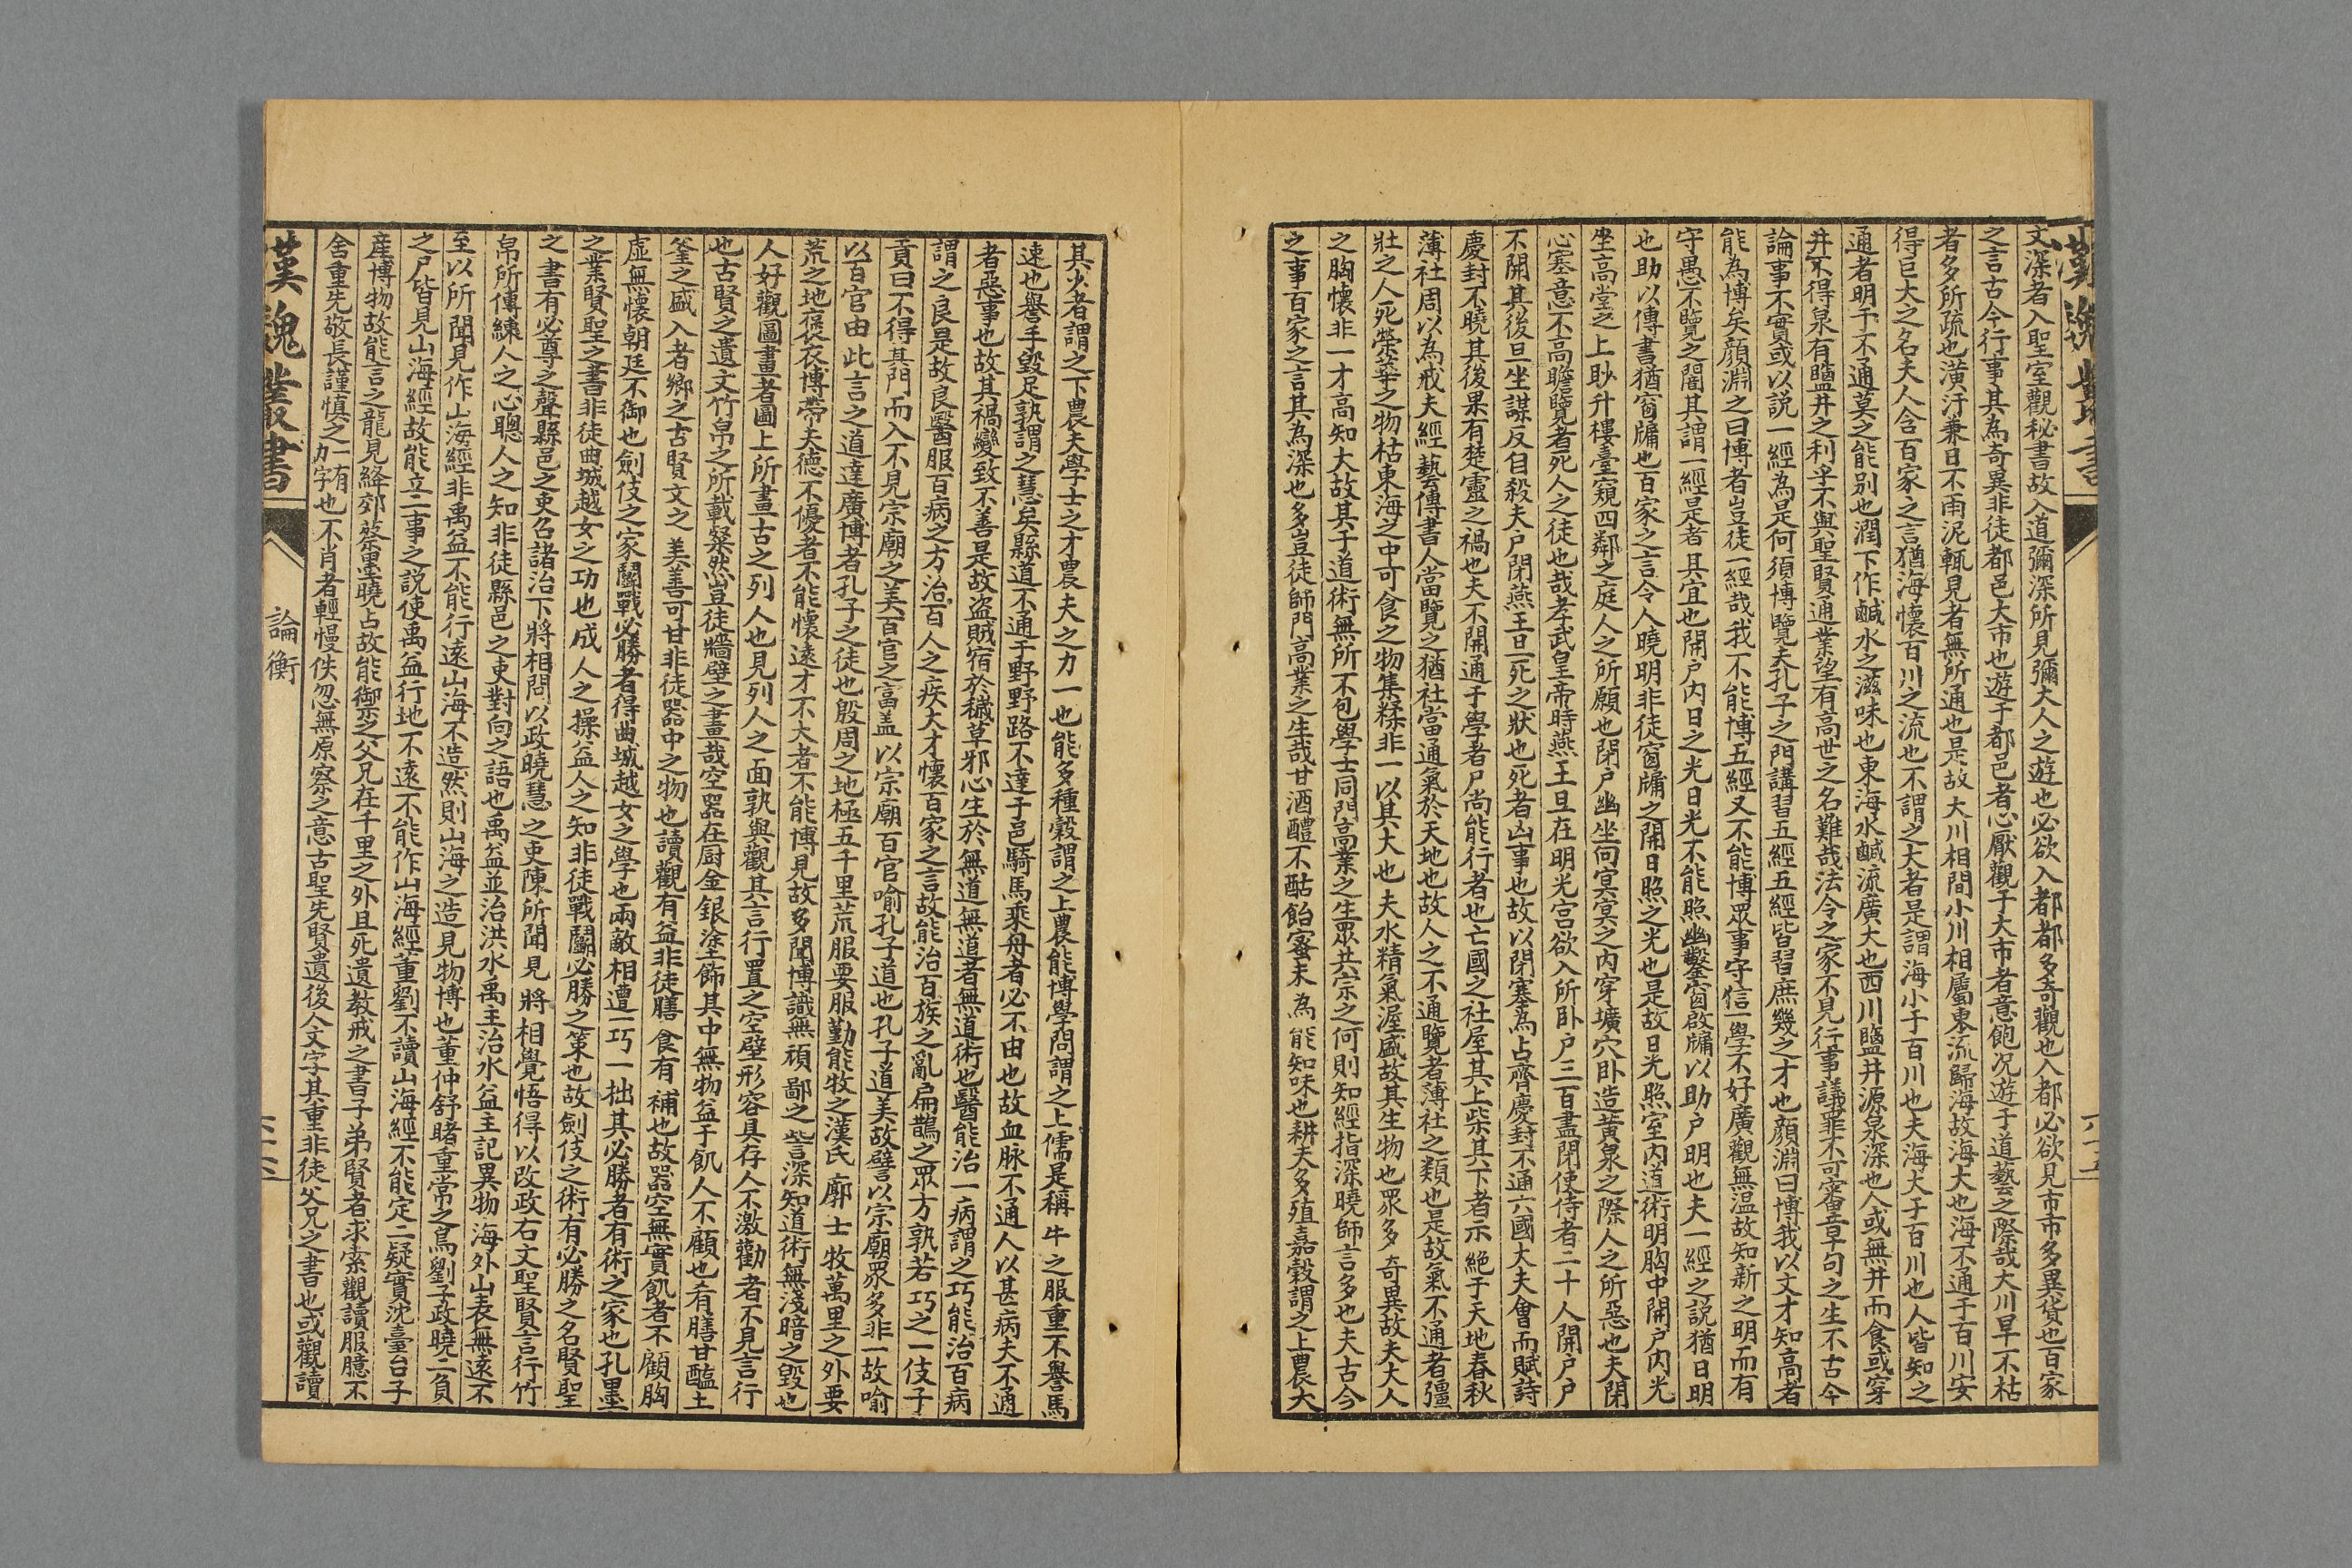 漢魏叢書
文深者入聖室觀秘書故入道彌深所見彌大人之遊也必欲入都都多奇觀也入都必欲見市市多異貨也百家
之言古今行事其為奇異非徒都邑大市也遊于都邑者心厭觀于大市者意飽况遊于道藝之際哉大川旱不枯
者多所疏也潢汙兼日不雨泥輒見者無所通也是故大川相間小川相屬東流歸海故海大也海不通于百川安
得巨大之名夫人含百家之言猶海懷百川之流也不謂之大者是謂海小于百川也夫海大于百川也人皆知之
通者明于不通莫之能别也潤下作鹹水之滋味也東海水鹹流廣大也西川鹽井源泉深也人或無井而食或穿
井不得泉有鹽井之利乎不與聖賢通業望有高世之名難哉法令之家不見行事議罪不可審章句之生不古今
論事不實或以説一經為是何須博覽夫孔子之門講習五經五經皆習庶幾之才也顏淵曰博我以文才知高者
能為博矣顏淵之曰博者豈徒一經哉我不能博五經又不能博眾事守信一學不好廣觀無温故知新之明而有
守愚不覽之闇其謂一經是者其宜也開户内日之光日光不能照幽鑿窗啟牖以助户明也夫一經之説猶日明
也助以傳書猶窗牖也百家之言令人曉明非徒窗牖之開日照之光也是故日光照室内道術明胸中開户内光
坐高堂之上眇升樓臺窺四鄰之庭人之所願也閉户幽坐向冥冥之内穿壙穴卧造黄泉之際人之所惡也夫閉
心塞意不高瞻覽者死人之徒也哉孝武皇帝時燕王旦在明光宫欲入所卧户三百盡閉使侍者二十人開户户
不開其後旦坐謀反自殺夫户閉燕王旦死之狀也死者凶事也故以閉塞為占齊慶封不通六國大夫會而賦詩
慶封不曉其後果有楚靈之禍也夫不開通于學者尸尚能行者也亡國之社屋其上柴其下者示絶于天地春秋
薄社周以為戒夫經藝傳書人當覽之猶社當通氣於天地也故人之不通覽者薄社之類也是故氣不通者彊
壯之人死榮華之物枯東海之中可食之物集糅非一以其大也夫水精氣渥盛故其生物也眾多奇異故夫大人
之胸懷非一才高知大故其于道術無所不包學士同門高業之生眾共宗之何則知經指深曉師言多也夫古今
之事百家之言其為深也多豈徒師門高業之生哉甘酒醴不酤飴蜜未為能知味也耕夫多殖嘉穀謂之上農大
其少者謂之下農夫學士之才農夫之力一也能多種穀謂之上農能博學問謂之上儒是稱牛之服重不譽馬
速也譽手毁足孰謂之慧矣縣道不通于野野路不達于邑騎馬乘舟者必不由也故血脉不通人以甚病夫不通
者惡事也故其禍變致不善是故盗賊宿於穢草邪心生於無道無道者無道術也醫能治一病謂之巧能治百病
謂之良是故良醫服百病之方治百人之疾大才懷百家之言故能治百族之亂扁鵲之眾方孰若巧之一伎子
貢曰不得其門而入不見宗廟之美百官之富盖以宗廟百官喻孔子道也孔子道美故譬以宗廟眾多非一故喻
以百官由此言之道達廣博者孔子之徒也殷周之地極五千里荒服要服勤能牧之漢氏廓士牧萬里之外要
荒之地襃衣博帶夫德不優者不能懷遠才不大者不能博見故多聞博識無頑鄙之訾深知道術無淺暗之毁也
人好觀圖畫者圖上所畫古之列人也見列人之面孰與觀其言行置之空壁形容具存人不激勸者不見言行
也古賢之遺文竹帛之所載粲然豈徒牆壁之畫哉空器在厨金銀塗飾其中無物益于飢人不顧也肴膳甘醢土
釜之盛入者鄉之古賢文之美善可甘非徒器中之物也讀觀有益非徒膳食有補也故器空無實飢者不顧胸
虚無懷朝廷不御也劍伎之家鬭戰必勝者得曲城越女之學也兩敵相遭一巧一拙其必勝者有術之家也孔墨
之業賢聖之書非徒曲城越女之功也成人之操益人之知非徒戰鬭必勝之策也故劍伎之術有必勝之名賢聖
之書有必尊之聲縣邑之吏召諸治下將相問以政曉慧之吏陳所聞見將相覺悟得以改政右文聖賢言行竹
帛所傳練人之心聰人之知非徒縣邑之吏對向之語也禹益並治洪水禹主治水益主記異物海外山表無遠不
至以所聞見作山海經非禹益不能行遠山海不造然則山海之造見物博也董仲舒睹重常之鳥劉子政曉二負
之尸皆見山海經故能立二事之説使禹益行地不遠不能作山海經董劉不讀山海經不能定二疑實沈臺台子
產博物故能言之龍見絳郊蔡墨曉占故能御之父兄在千里之外且死遺教戒之書子弟賢者求索觀讀服臆不
舍重先敬長謹慎之一有力字也不肖者輕慢佚忽無原察之意古聖先賢遺後人文字其重非徒父兄之書也或觀讀
漢魏叢書
論衡